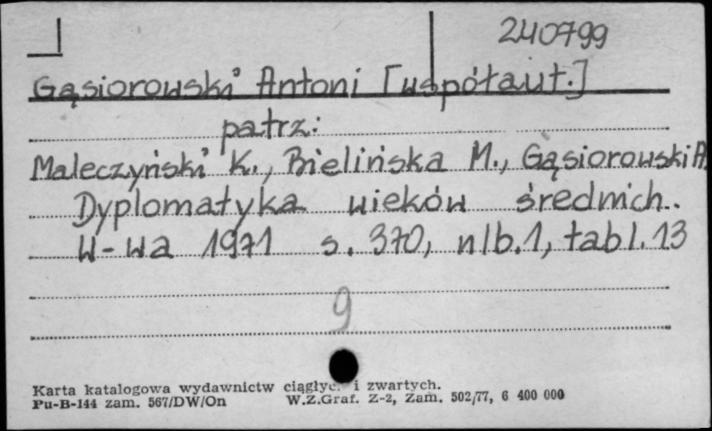 240799
Gąsiorowski Antoni [współaut.]
patrz:
Maleczyński K., Bielińska M., Gąsiorowski A.
Dyplomatyka wieków średnich.
W-wa 1971 s. 370, nlb. 1, tabl. 13
9
Karta katalogowa wydawnictw ciągłyc. i zwartych.
Pu-B-144 zam. 567/DW/On W.Z.Graf. Z-2, Zam. 502/77, 6 400 000